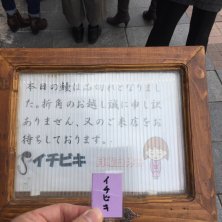 本日の鰻は品切れとなりまし
た。折角のお越し誠に申し訳
ありません、又のご来店をお
待ちしております。
イチビキ
イチビキ